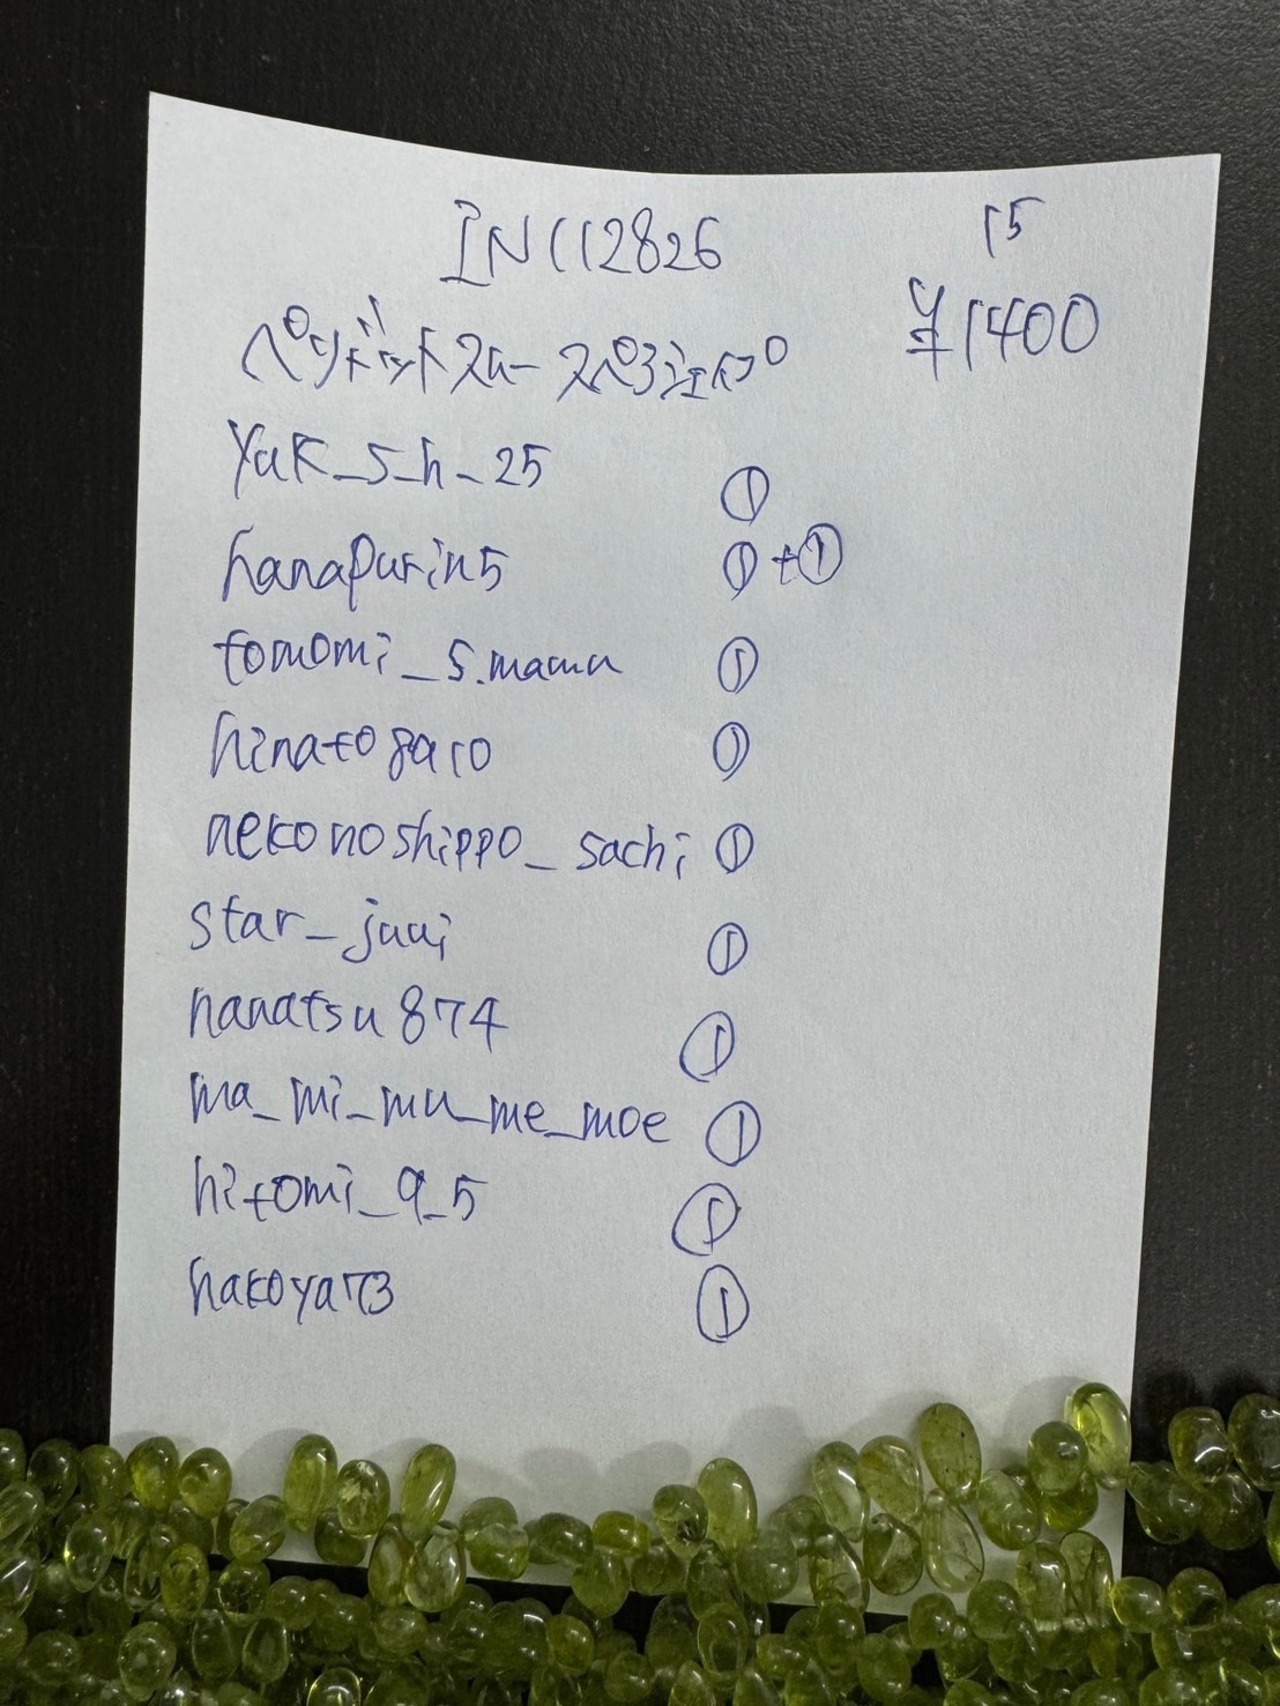 INC112826
15
ペリドットスムースペアシェイプ
¥1400
yak_s_h_25 ①
hanapurin5 ①+①
tomomi_s.mama ①
hinatogaro ①
nekonoshippo_sachi ①
star_juui ①
nanatsu874 ①
ma_mi_mu_me_moe ①
hitomi_9_5 ①
hakoya73 ①